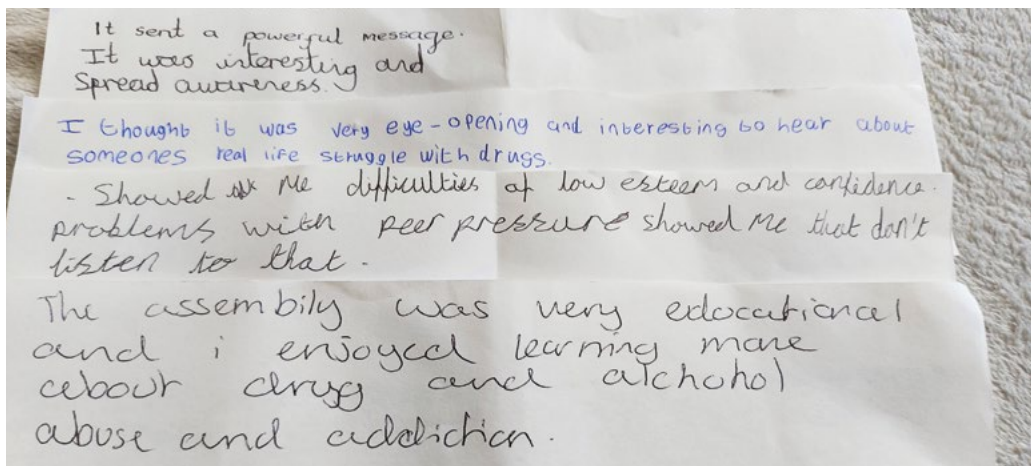 It sent a powerful message.
It was interesting and
Spread awareness.
I thought it was very eye-opening and interesting to hear about
someones real life struggle with drugs.
- Showed me difficulties of low esteem and confidence.
problems with peer pressure showed me that don't
listen to that.
The assembily was very edocational
and i enjoyed learning more
about drugg and alchohol
abuse and addiction.